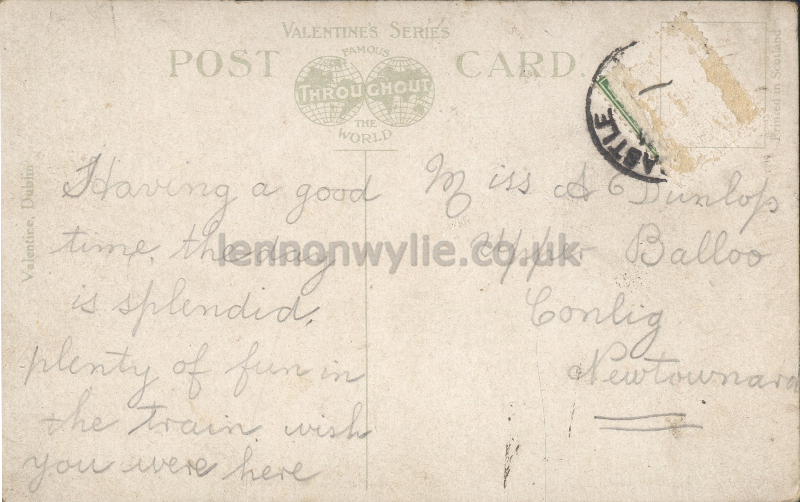 VALENTINE'S SERIES
POST CARD.
FAMOUS
THROUGHOUT
THE
WORLD
Printed in Scotland
Valentine, Dublin
ASTLE
Having a good
time. the day
is splendid.
plenty of fun in
the train wish
you were here
Miss A C Dunlop
Upper Balloo
Conlig
Newtownard
lennonwylie.co.uk